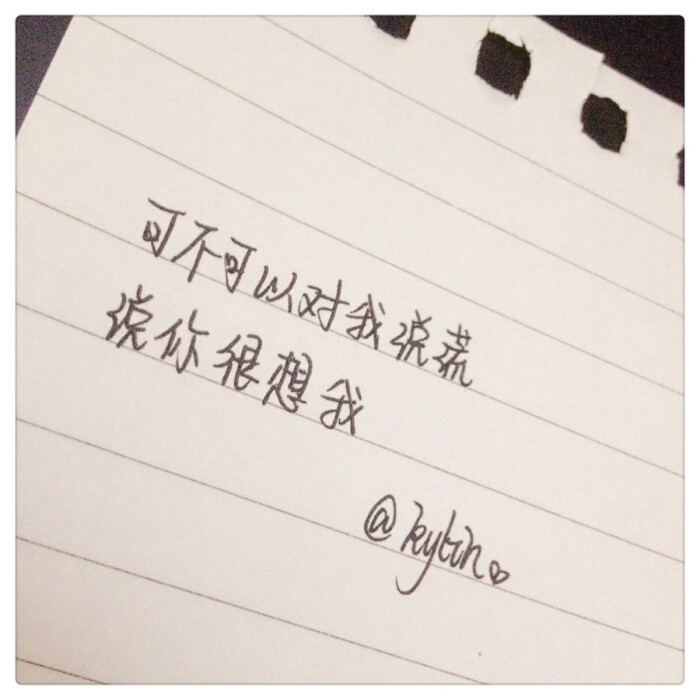 可不可以对我说谎
说你很想我
@kylin